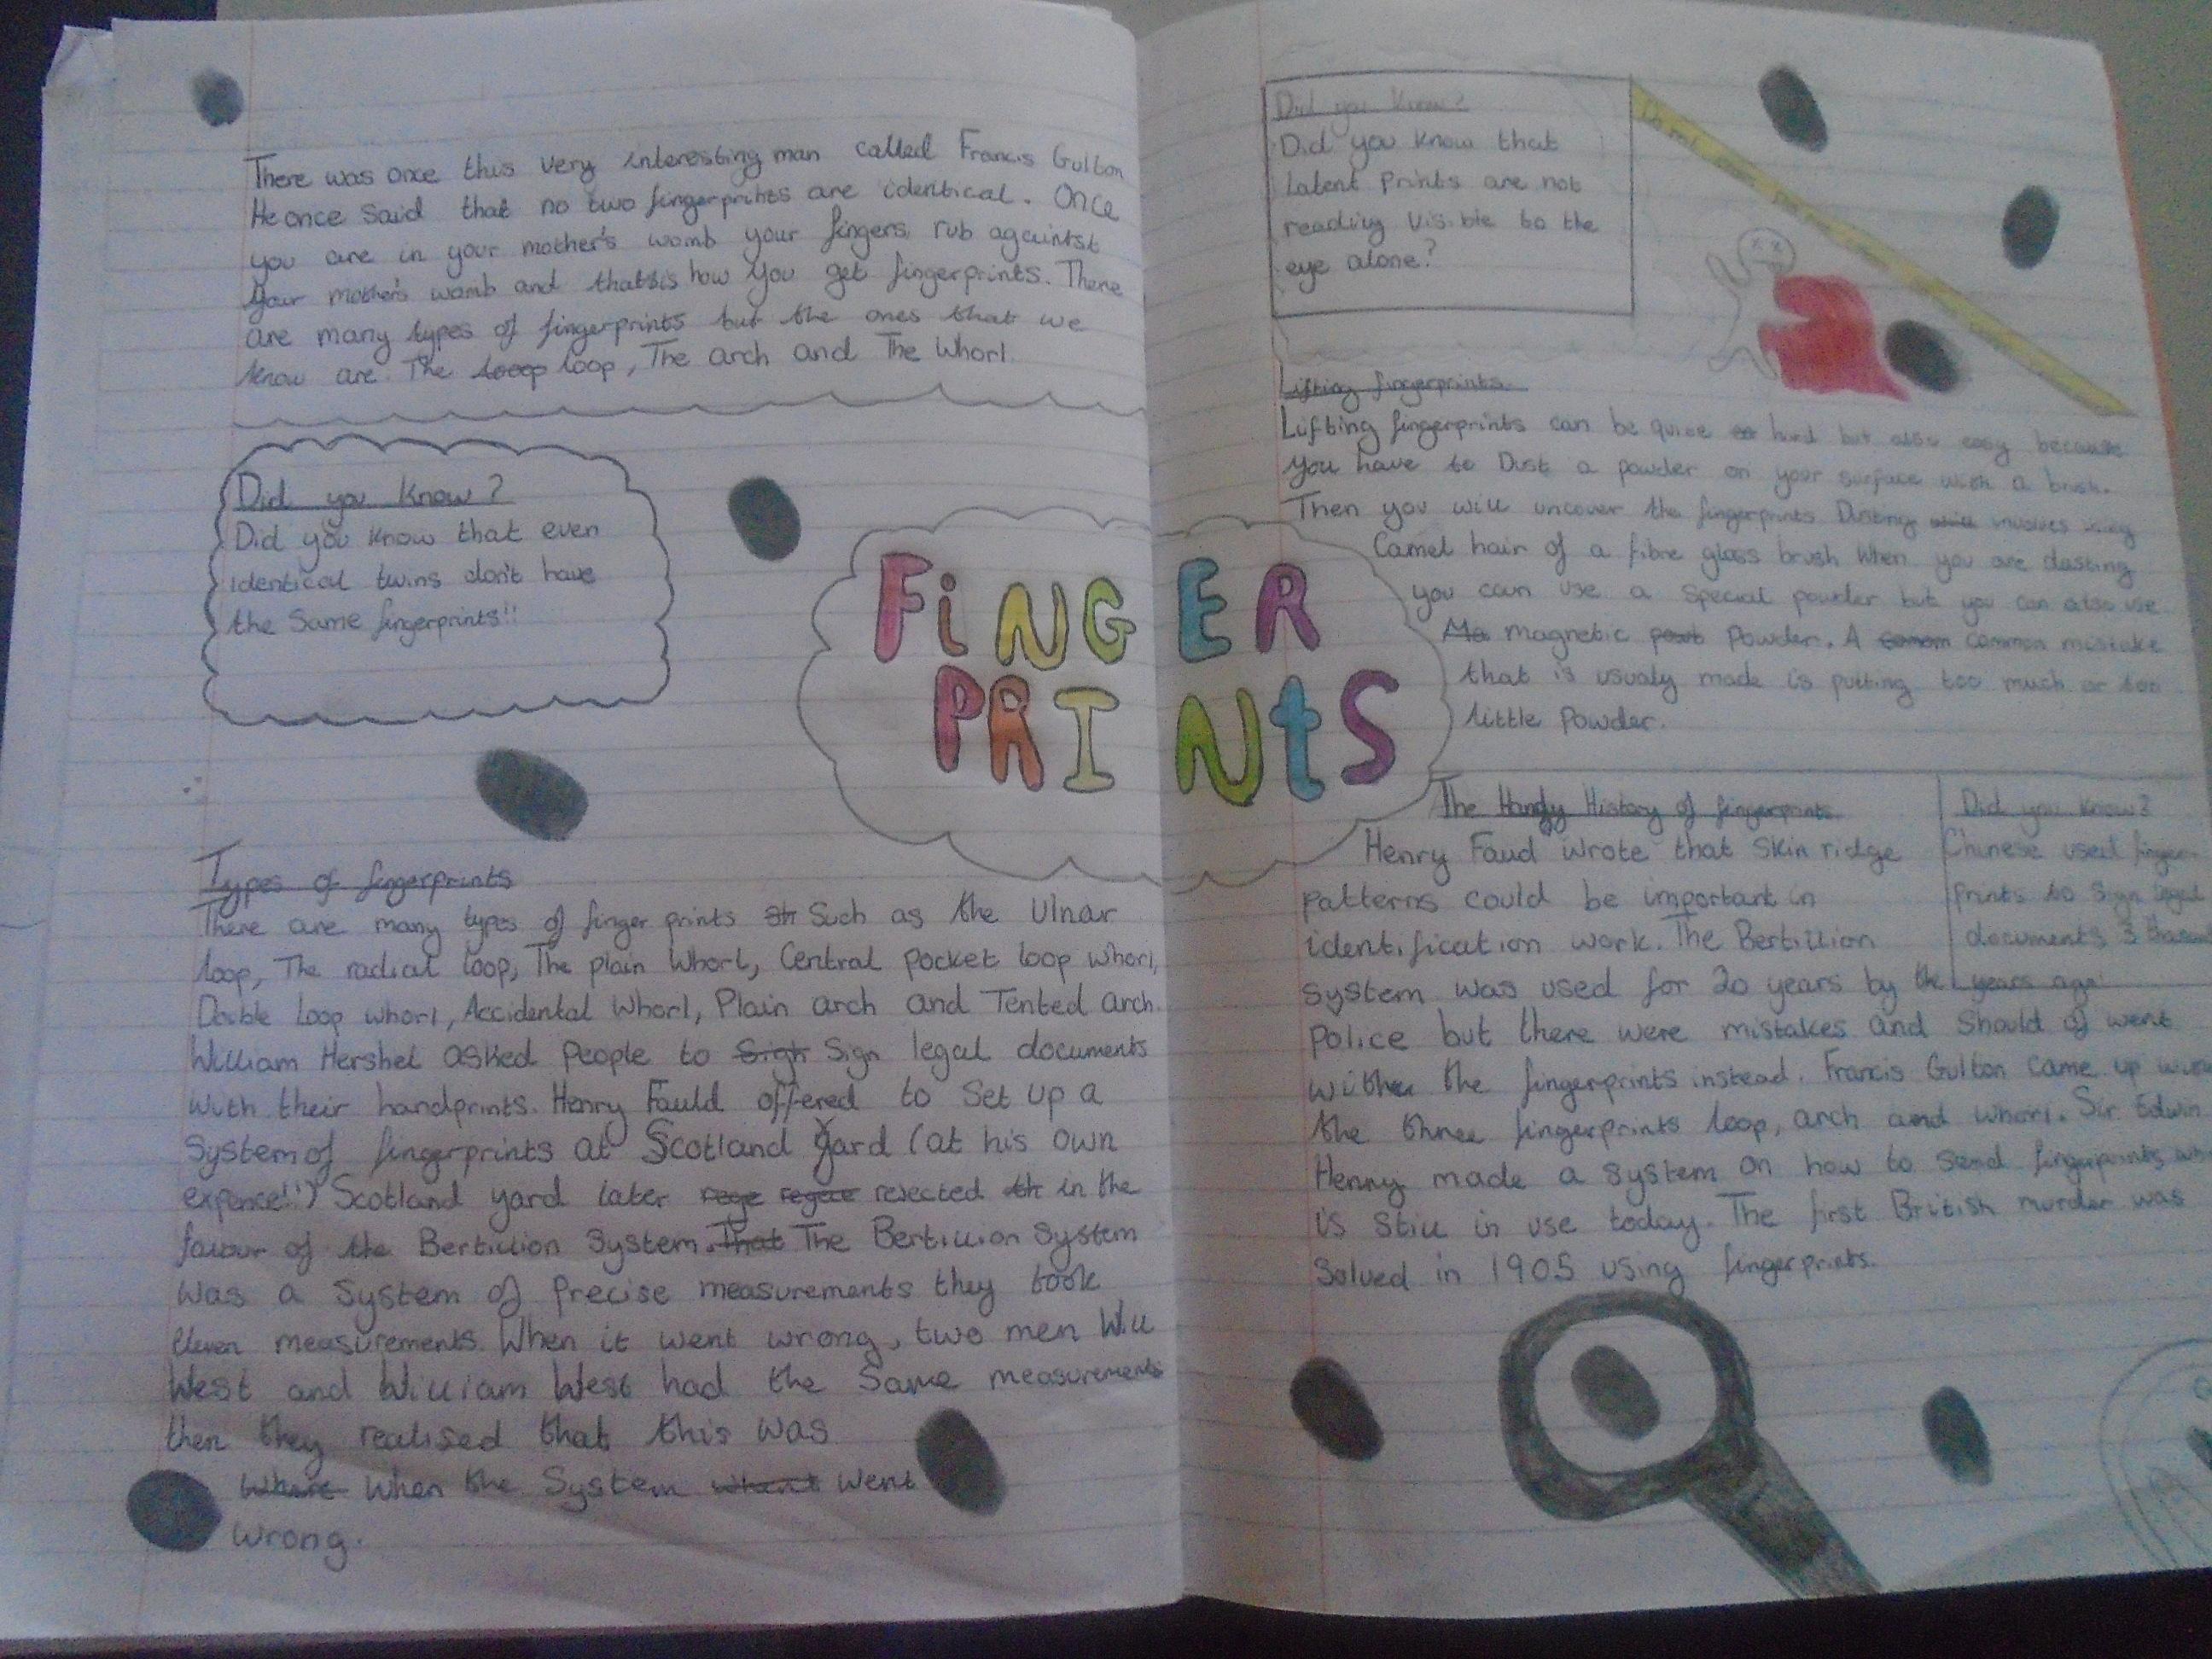 There was once this very interesting man called Francis Gulton
He once said that no two fingerprints are identical. Once
you are in your mother's womb your fingers rub againtst
your mother's womb and that's is how you get fingerprints. There
are many types of fingerprints but the ones that we
know are. The loop, The arch and The Whorl.
Did you know?
Did you know that even
identical twins don't have
the same fingerprints!!
FiNGER
PRINtS
Types of fingerprints
There are many types of finger prints Such as the Ulnar
loop, The radial loop, The plain Whorl, Central pocket loop whorl,
Double loop whorl, Accidental Whorl, Plain arch and Tented arch.
William Hershel asked people to Sign legal documents
with their handprints. Henry Fauld offered to Set up a
System of fingerprints at Scotland Yard (at his own
expence!!) Scotland yard later rejected in the
favour of the Bertillion System. The Bertillion System
Was a System of Precise measurements they took
Eleven measurements. When it went wrong, two men Will
West and William West had the Same measurements
then they realised that this was
When the System went
wrong.
Did you know?
Did you know that
latent prints are not
readily visible to the
eye alone?
Lifting fingerprints.
Lifting fingerprints can be quite hard but also easy because
you have to Dust a powder on your surface with a brush.
Then you will uncover the fingerprints Dusting involves
Camel hair of a fibre glass brush When you are dusting
you can use a special powder but you can also use
magnetic powder. A common mistake
that is usualy made is putting too much or too
little powder.
The History of fingerprints
Henry Faud wrote that Skin ridge
patterns could be important in
identification work. The Bertillion
System was used for 20 years by the
Police but there were mistakes and should of went
with the fingerprints instead. Francis Gulton came up with
the three fingerprints loop, arch and whorl. Sir Edwin
Henry made a system on how to send fingerprints
is still in use today. The first British murder was
Solved in 1905 using fingerprints.
Did you know?
Chinese used finger-
prints to sign legal
documents 3
years ago